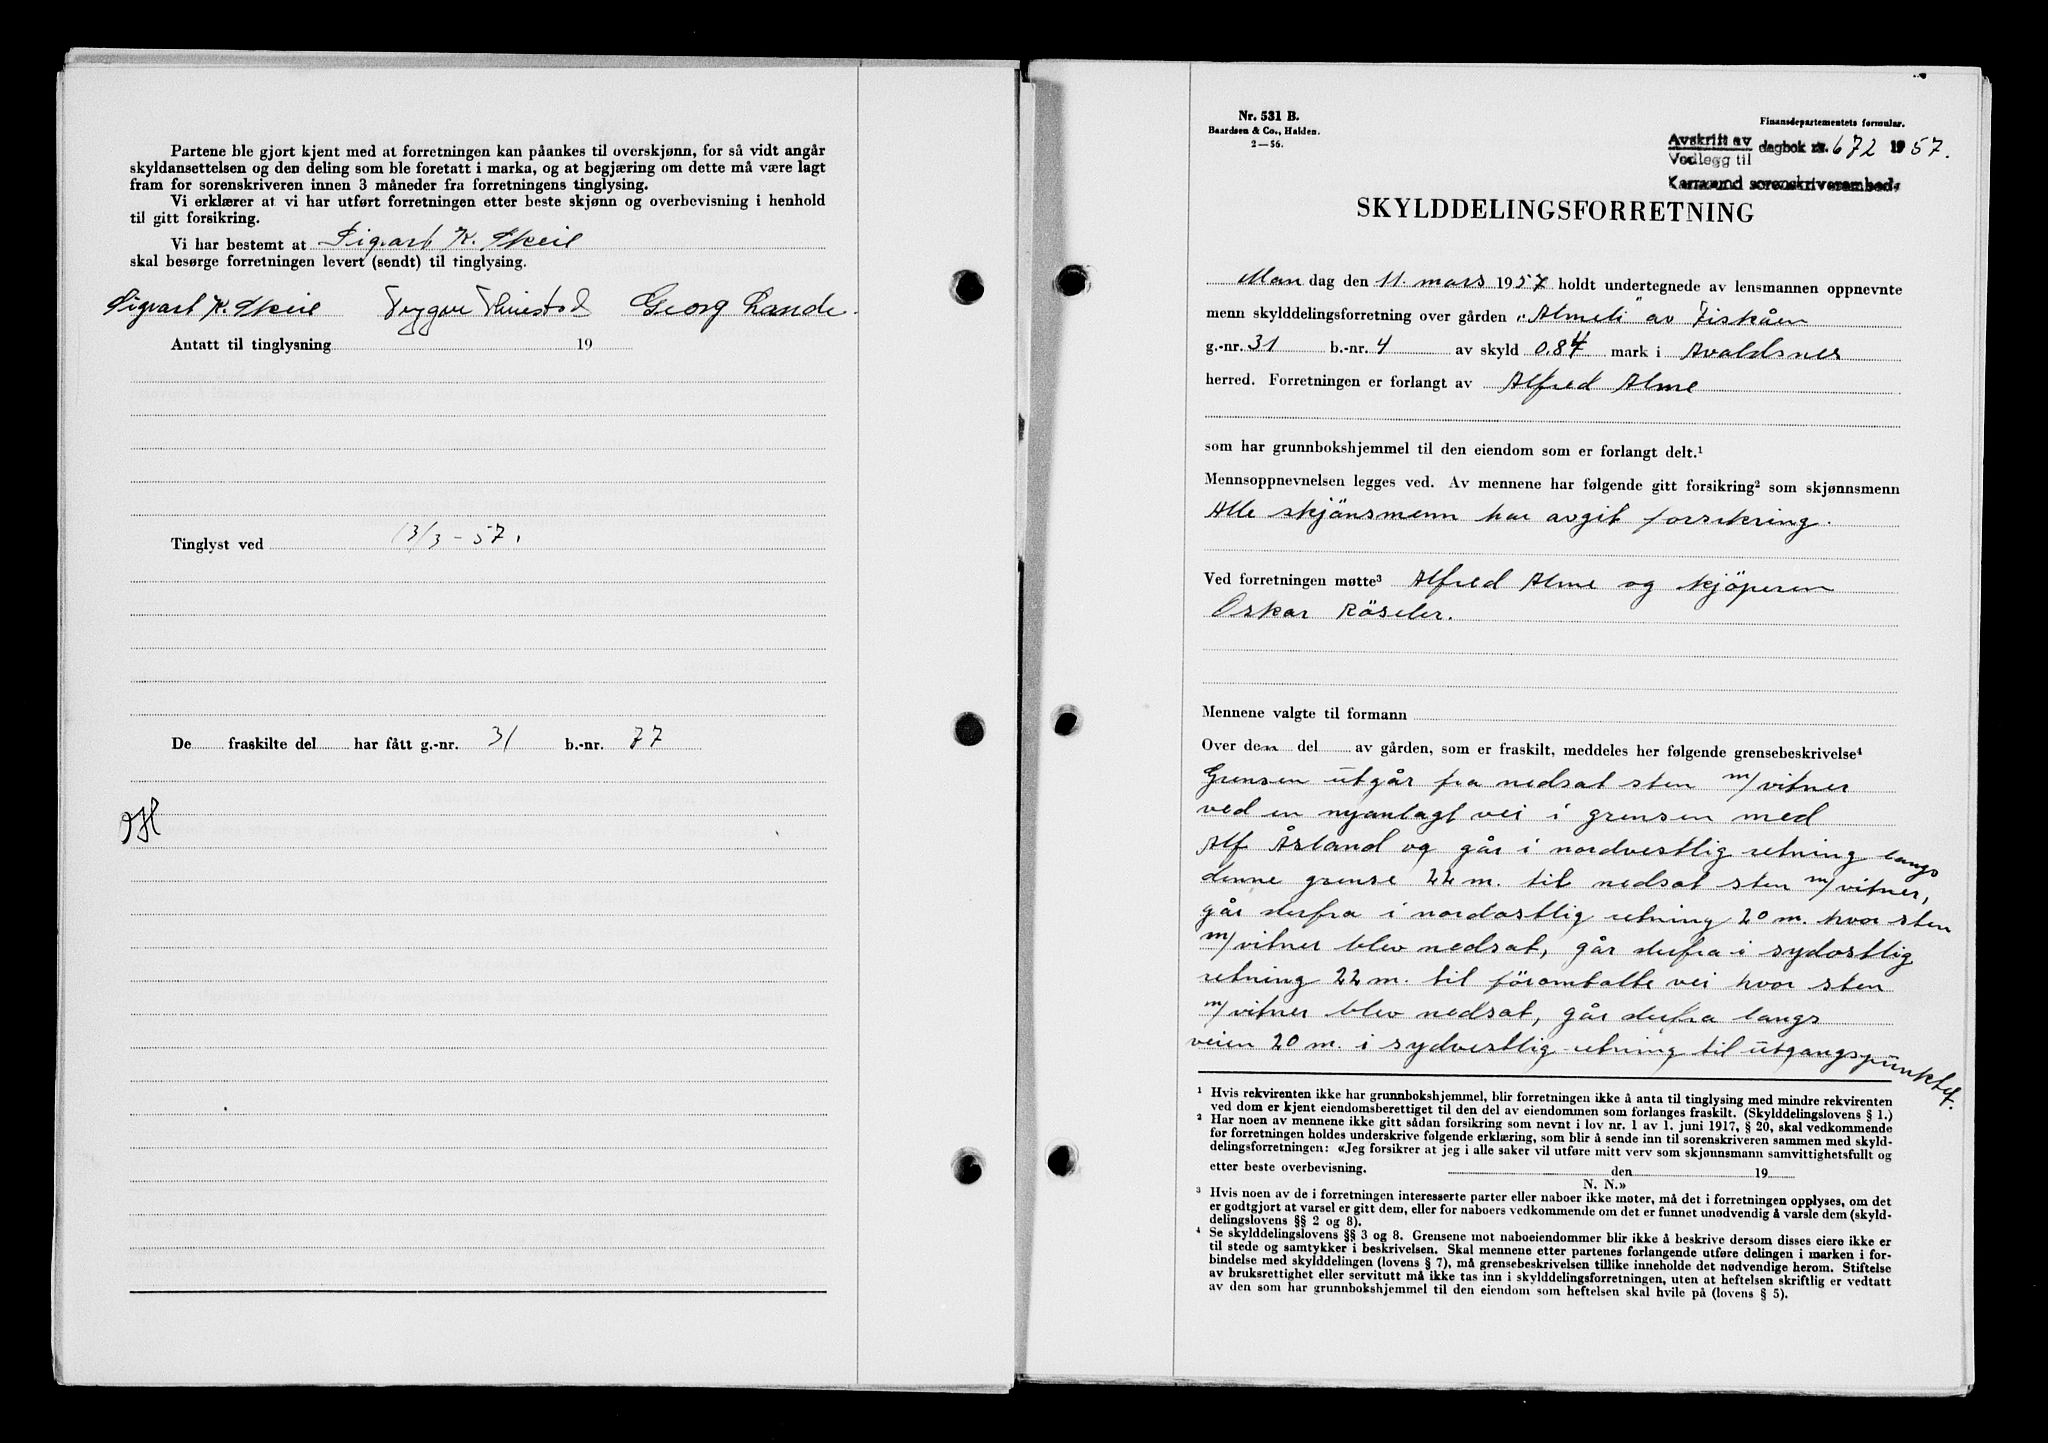 Partene ble gjort kjent med at forretningen kan påankes til overskjønn, for så vidt angår
skyldansettelsen og den deling som ble foretatt i marka, og at begjæring om dette må være lagt
fram for sorenskriveren innen 3 måneder fra forretningens tinglysing.
Vi erklærer at vi har utført forretningen etter beste skjønn og overbevisning i henhold
til gitt forsikring.
Vi har bestemt at Sigvart K. Skeie
skal besørge forretningen levert (sendt) til tinglysing.
Sigvart K. Skeie Trygve Georg Lande.
Antatt til tinglysning 19
Tinglyst ved 13/3-57.
De fraskilte del har fått g.-nr. 31 b.-nr. 77
Nr. 531 B.
Baardsen & Co., Halden.
2—56.
Finansdepartementets formular.
Avskrift av
Vedlegg til dagbok nr. 672 1957.
Karmsund sorenskriverembede
SKYLDDELINGSFORRETNING
Mandag den 11. mars 1957 holdt undertegnede av lensmannen oppnevnte
menn skylddelingsforretning over gården "Almeli" av Fiskåen
g.-nr. 31 b.-nr. 4 av skyld 0.84 mark i Avaldsnes
herred. Forretningen er forlangt av Alfred Alme
som har grunnbokshjemmel til den eiendom som er forlangt delt.¹
Mennsoppnevnelsen legges ved. Av mennene har følgende gitt forsikring² som skjønnsmenn
Alle skjönsmenn har avgit forsikring.
Ved forretningen møtte³ Alfred Alme og kjöperen
Oskar Röseler.
Mennene valgte til formann
Over den del av gården, som er fraskilt, meddeles her følgende grensebeskrivelse⁴
Grensen utgår fra nedsat sten m/vitner
ved en nyanlagt vei i grensen med
Alf Åsland og går i nordvestlig retning langs
denne grense 22 m. til nedsat sten m/vitner,
går derfra i nordostlig retning 20 m. hvor sten
m/vitner blev nedsat, går derfra i sydostlig
retning 22 m. til föromtalte vei hvor sten
m/vitner blev nedsat, går derfra langs
veien 20 m. i sydvestlig retning til utgangspunktet.
¹ Hvis rekvirenten ikke har grunnbokshjemmel, blir forretningen ikke å anta til tinglysing med mindre rekvirenten
ved dom er kjent eiendomsberettiget til den del av eiendommen som forlanges fraskilt. (Skylddelingslovens § 1.)
² Har noen av mennene ikke gitt sådan forsikring som nevnt i lov nr. 1 av 1. juni 1917, § 20, skal vedkommende
før forretningen holdes underskrive følgende erklæring, som blir å sende inn til sorenskriveren sammen med skyld-
delingsforretningen: «Jeg forsikrer at jeg i alle saker vil utføre mitt verv som skjønnsmann samvittighetsfullt og
etter beste overbevisning. den 19
N. N.»
³ Hvis noen av de i forretningen interesserte parter eller naboer ikke møter, må det i forretningen opplyses, om det
er godtgjort at varsel er gitt dem, eller for naboers vedkommende om det er funnet unødvendig å varsle dem (skyld-
delingslovens §§ 2 og 8).
⁴ Se skylddelingslovens §§ 3 og 8. Grensene mot naboeiendommer blir ikke å beskrive dersom disses eiere ikke er
til stede og samtykker i beskrivelsen. Skal mennene etter partenes forlangende utføre delingen i marken i for-
bindelse med skylddelingen (lovens § 7), må grensebeskrivelsen tillike inneholde det nødvendige herom. Stiftelse
av bruksrettighet eller servitutt må ikke tas inn i skylddelingsforretningen, uten at heftelsen skriftlig er vedtatt
av den som har grunnbokshjemmel til den eiendom som heftelsen skal hvile på (lovens § 5).